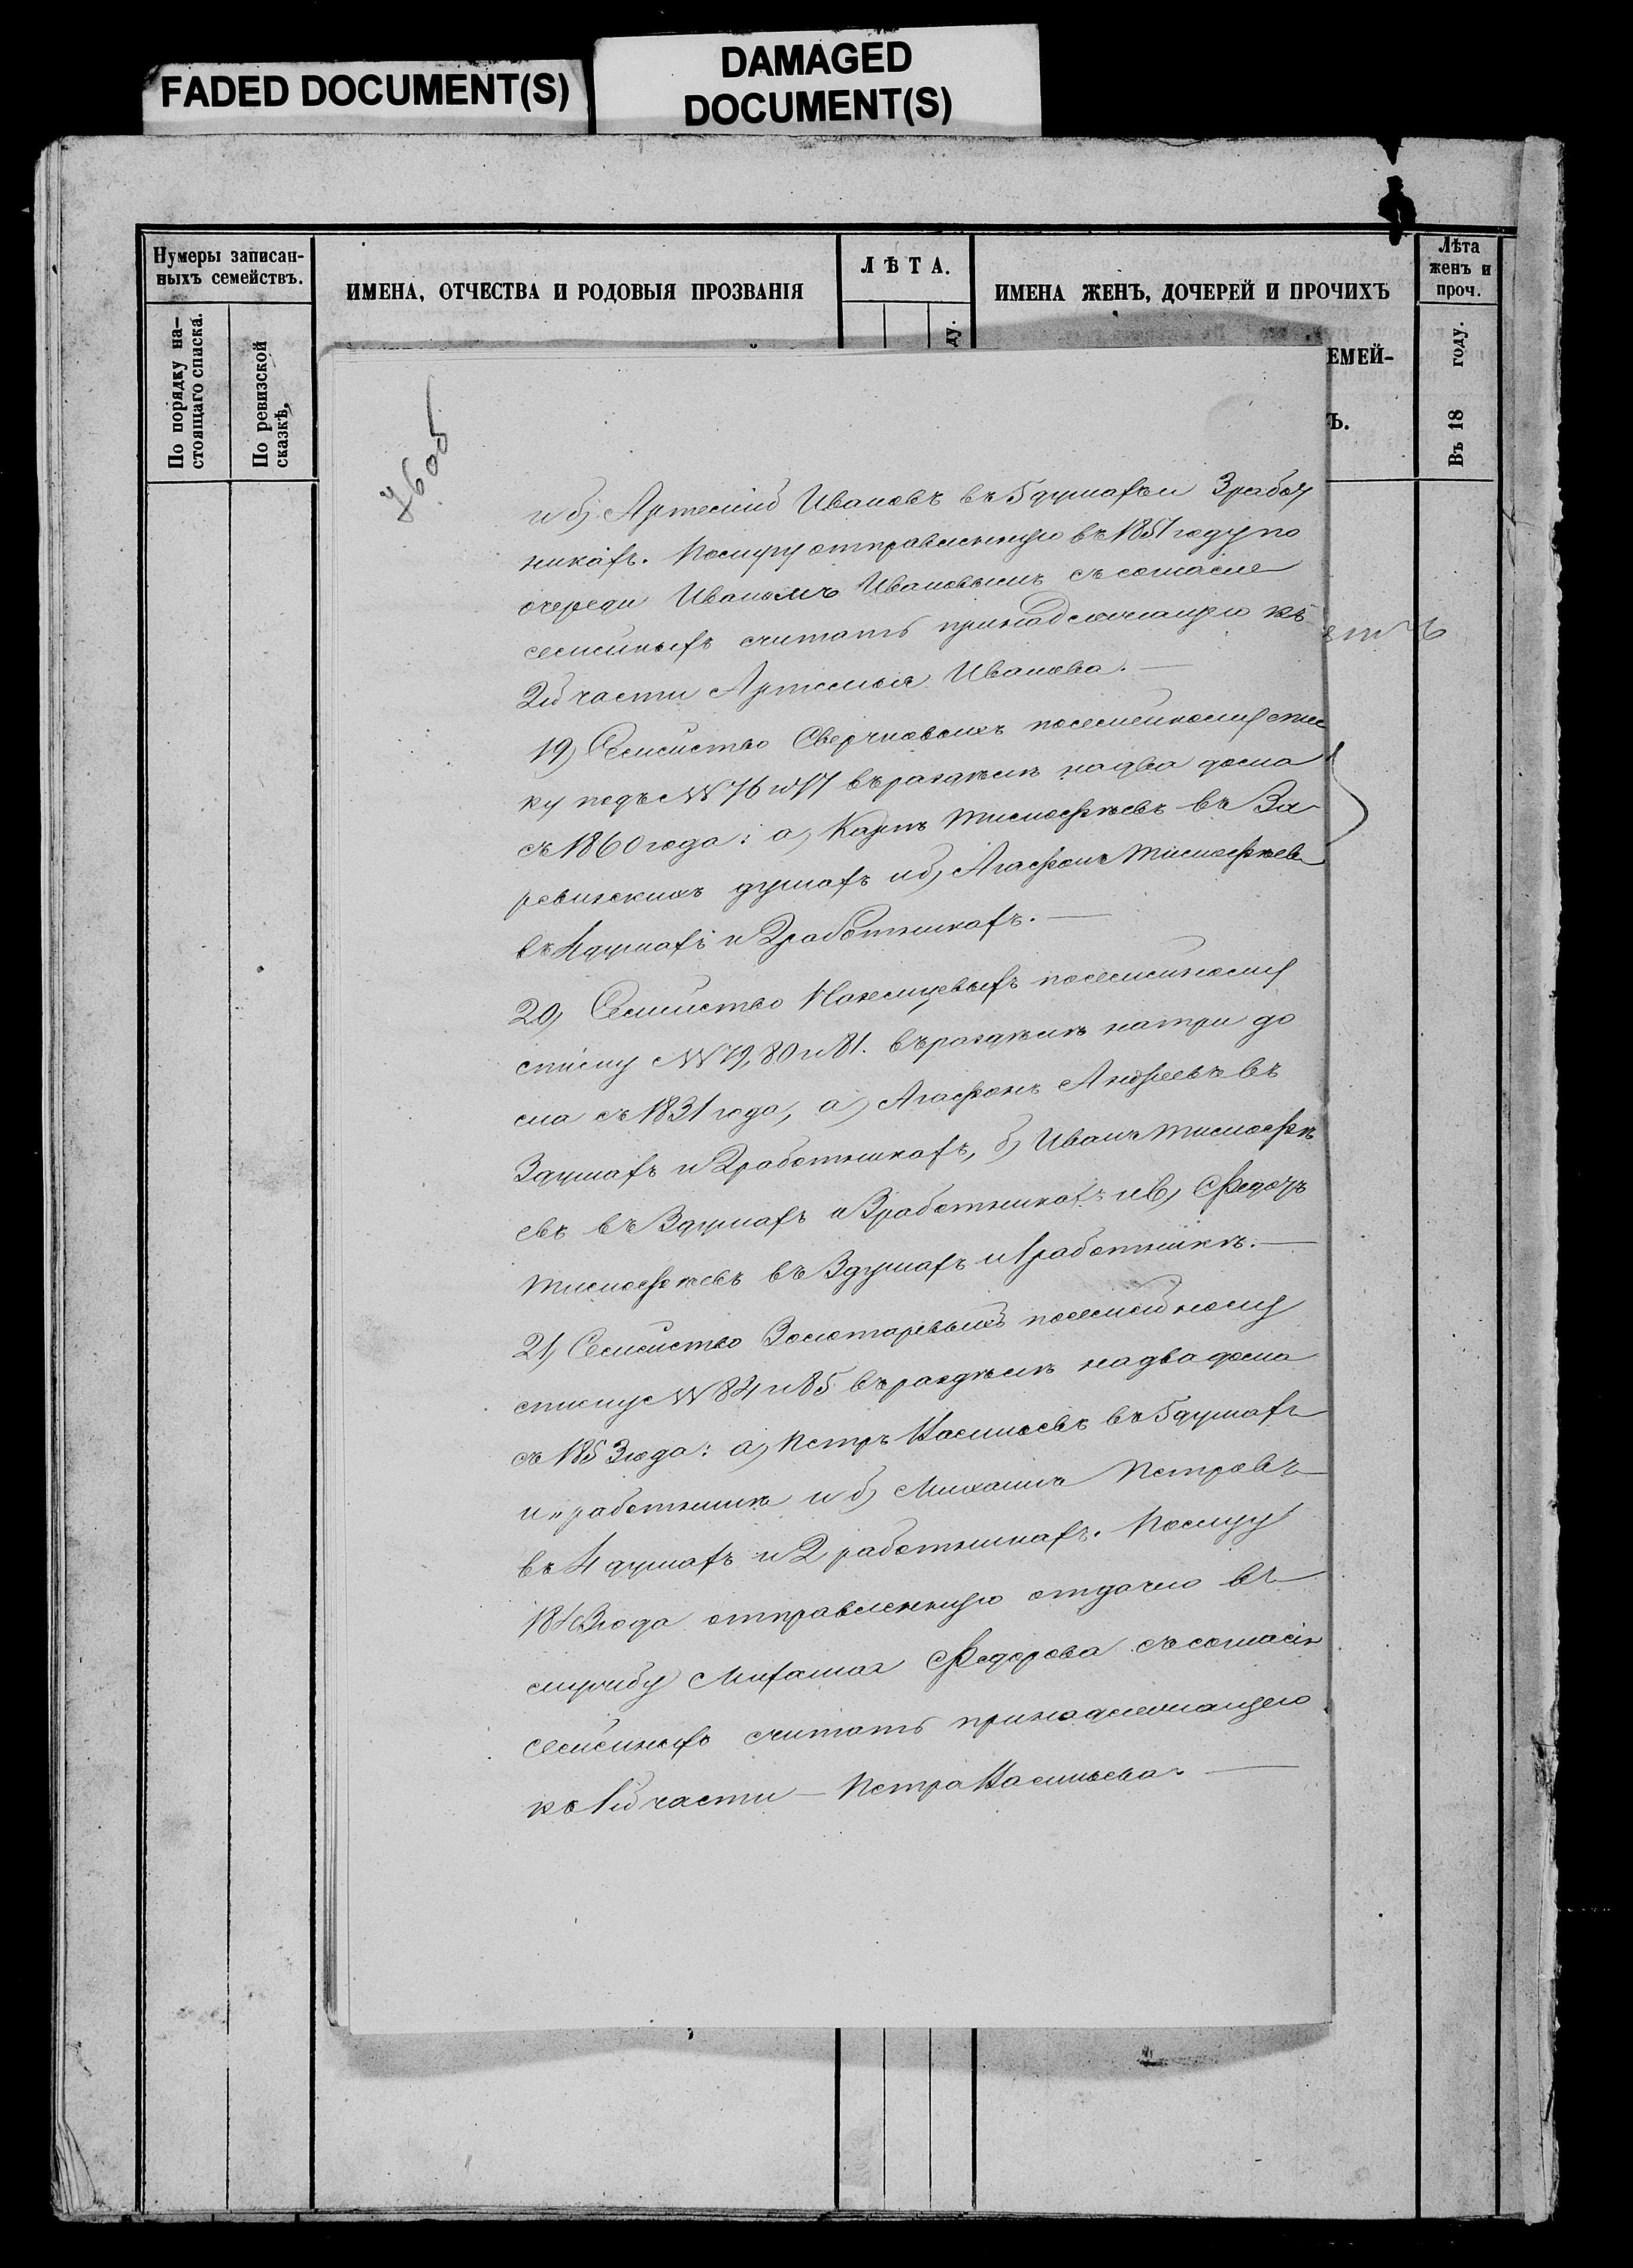 FADED DOCUMENT(S)
DAMAGED
DOCUMENT(S)
Нумеры записан-
ныхъ семействъ.
По порядку на-
стоящаго списка.
По ревизской
сказкѣ.
ИМЕНА, ОТЧЕСТВА И РОДОВЫЯ ПРОЗВАНІЯ
ЛѢТА.
ду.
ИМЕНА ЖЕНЪ, ДОЧЕРЕЙ И ПРОЧИХЪ
ЕМЕЙ-
Ъ.
Лѣта
женъ и
проч.
Въ 18 году.
и б) Артемій Ивановъ въ 5 душахъ и 3 работ
никахъ. Послугу отправленную въ 1851 году по
очереди Иваномъ Ивановымъ съ согласіе
семейныхъ считать принадлежащую къ
2й части Артемья Иванова. —
19) Семейство Сверчковыхъ посемейному спис
ку подъ №№ 76 и 77 въ раздѣлѣ на два дома
съ 1860 года: а) Карпъ Тимофѣевъ въ 3х
ревизскихъ душахъ и б) Агафонъ Тимофѣев
въ 4 душахъ и 2 работникахъ. —
20) Семейство посемейному
списку №№ 79, 80 и 81. въ раздѣлѣ на три до
ма съ 1831 года, а) Агафонъ Андреевъ въ
3 душахъ и 2 работникахъ, б) Иванъ Тимофѣ
евъ въ 3 душахъ и 3 работникахъ и в) Федоръ
Тимофѣевъ въ 3 душахъ и 1 работникѣ. —
21) Семейство Золотаревыхъ посемейному
списку №№ 84 и 85 въ раздѣлѣ на два дома
съ 1853 года: а) Петръ Васильевъ въ 5 душахъ
и „ работникѣ и б) Михаилъ Петровъ
въ 4 душахъ и 2 работникахъ. Послугу
года отправленную отдачею въ
службу Михаила Федорова съ согласія
семейныхъ считать принадлежащею
къ 1й части — Петра Васильева. —